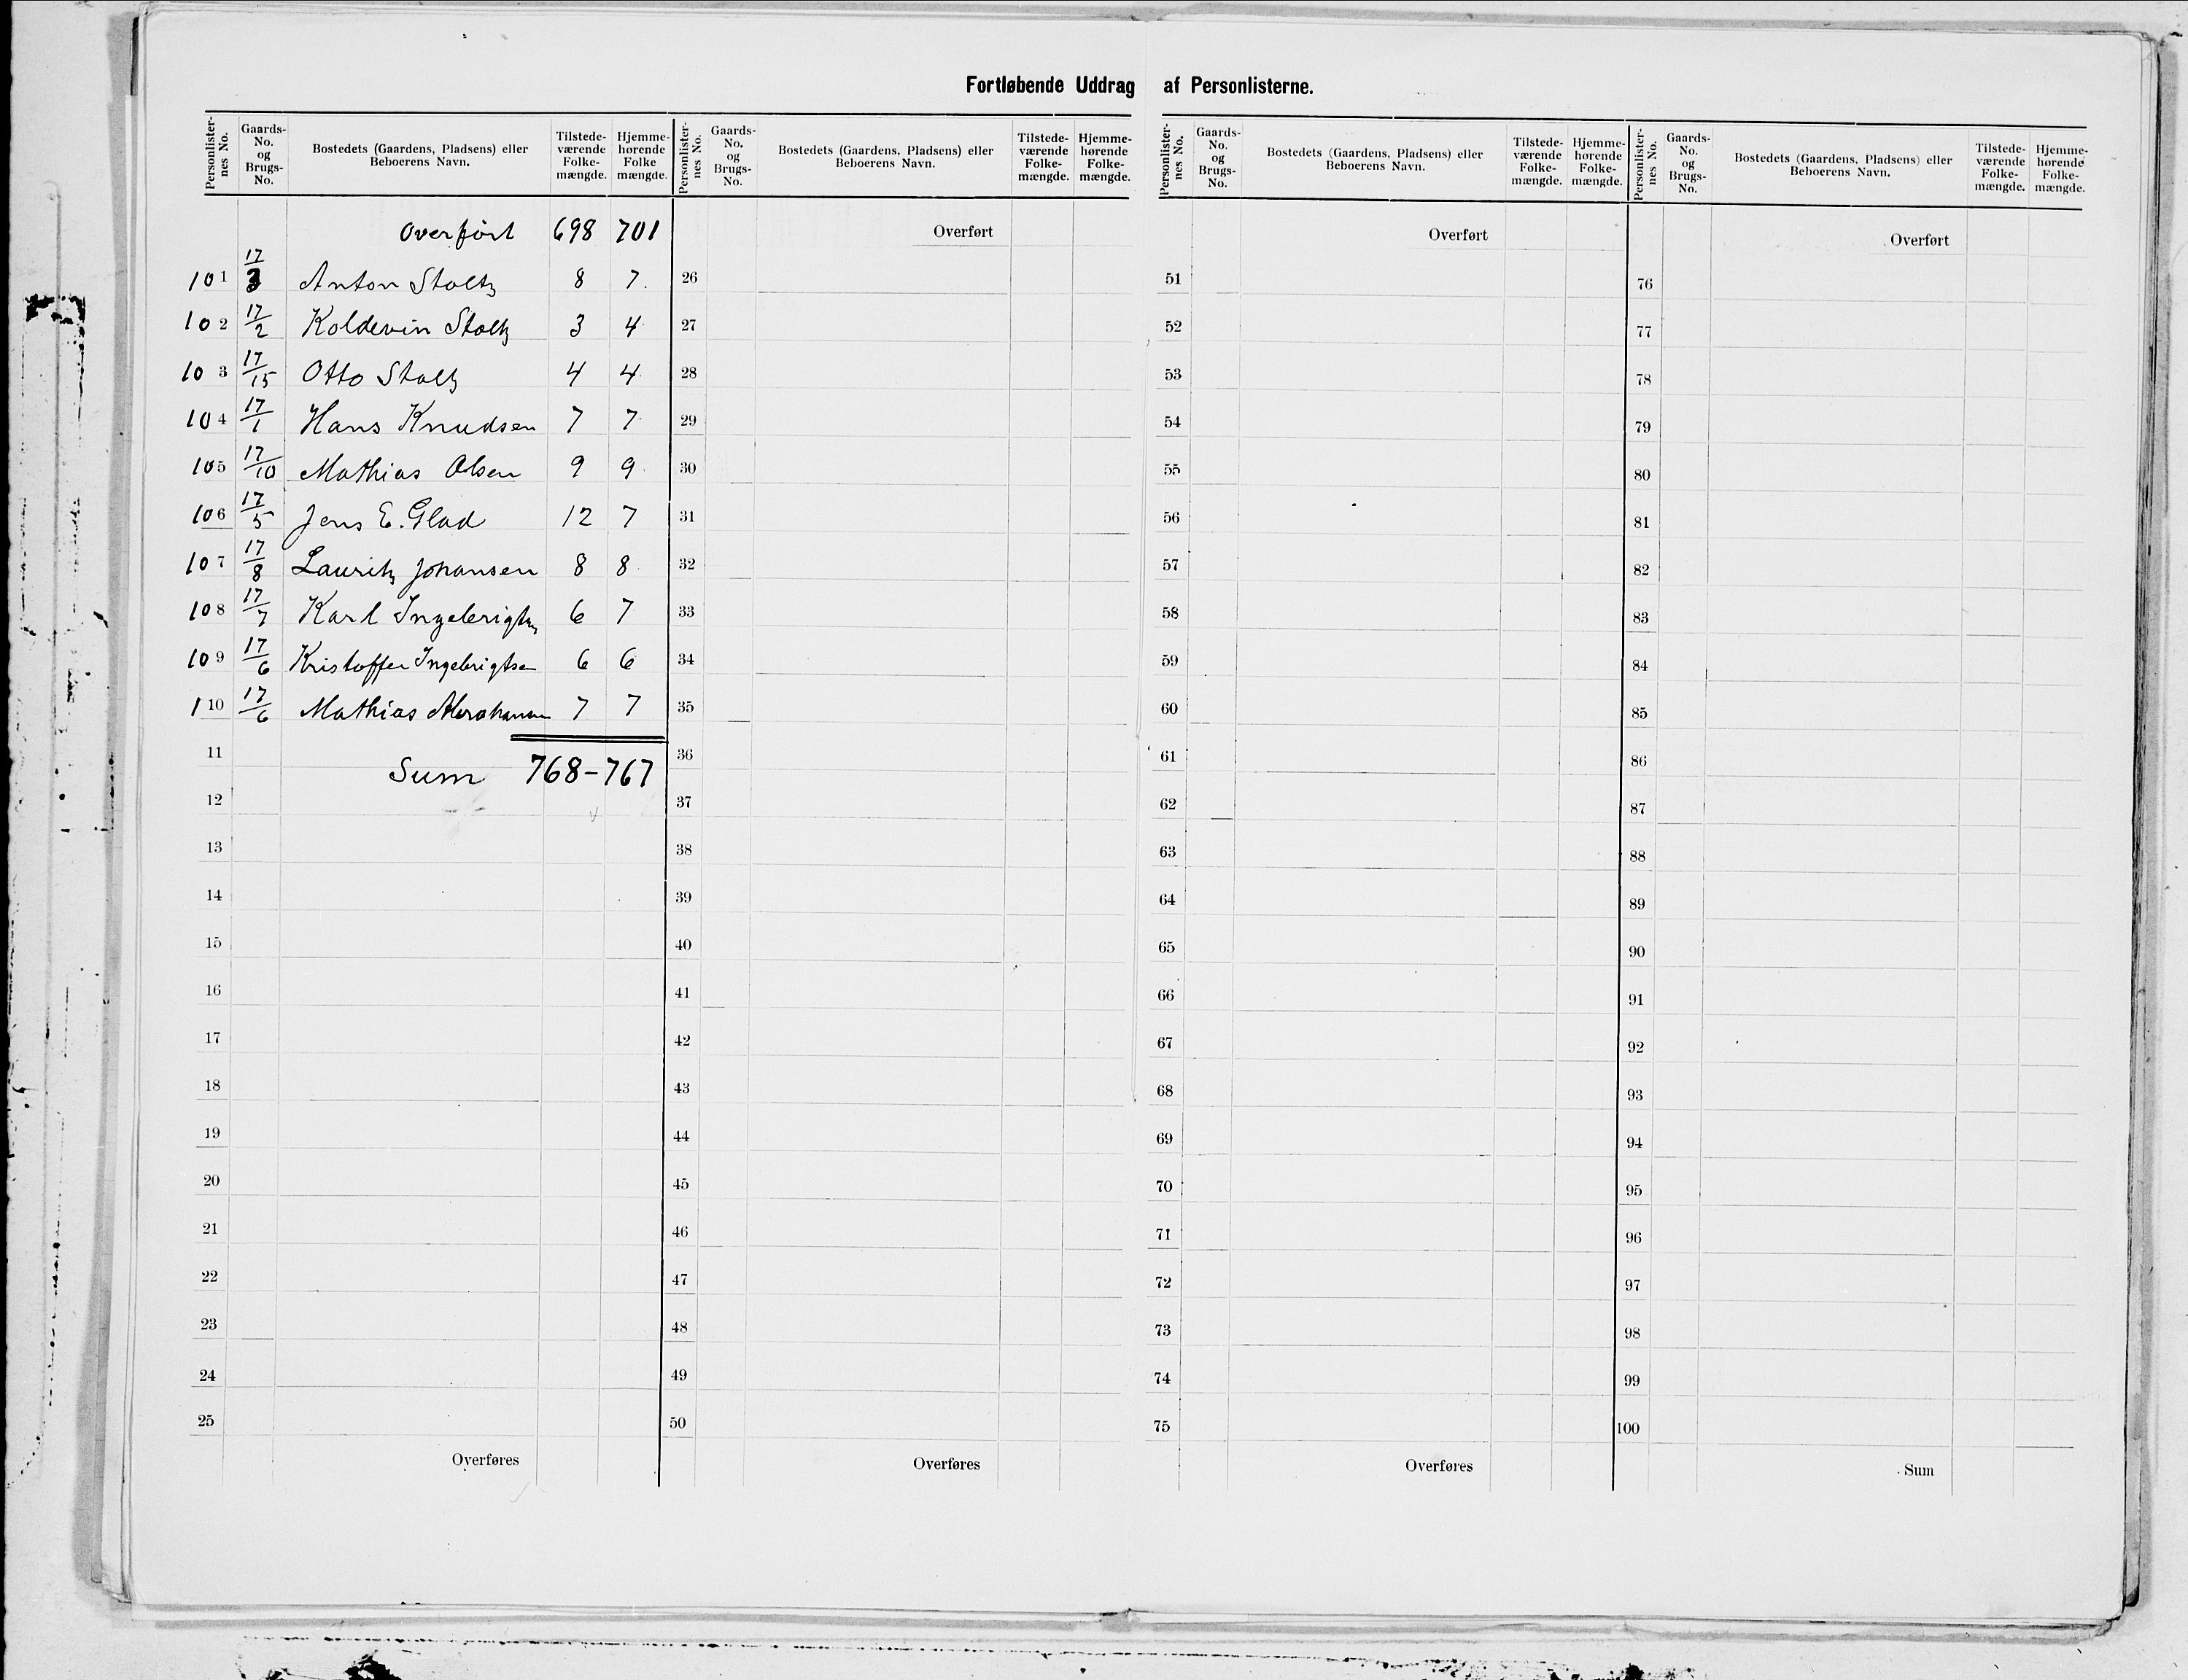 Fortløbende Uddrag af Personlisterne.
Personlister-nes No. | Gaards-No. og Brugs-No. | Bostedets (Gaardens, Pladsens) eller Beboerens Navn. | Tilstede-værende Folke-mængde. | Hjemme-hørende Folke mængde.
Overført 698 701
101 17/3 Anton Stoltz 8 7.
102 17/2 Koldevin Stoltz 3 4
103 17/15 Otto Stoltz 4 4
104 17/1 Hans Knudsen 7 7
105 17/10 Mathias Olsen 9 9
106 17/5 Jens E. Glad 12 7
107 17/8 Lauritz Johansen 8 8
108 17/7 Karl Ingebrigtsen 6 7
109 17/6 Kristoffer Ingebrigtsen 6 6
110 17/6 Mathias 7 7
11 Sum 768-767
12
13
14
15
16
17
18
19
20
21
22
23
24
25
Overføres
Personlister-nes No. | Gaards-No. og Brugs-No. | Bostedets (Gaardens, Pladsens) eller Beboerens Navn. | Tilstede-værende Folke-mængde. | Hjemme-hørende Folke-mængde.
Overført
26
27
28
29
30
31
32
33
34
35
36
37
38
39
40
41
42
43
44
45
46
47
48
49
50
Overføres
Personlister-nes No. | Gaards-No. og Brugs-No. | Bostedets (Gaardens, Pladsens) eller Beboerens Navn. | Tilstede-værende Folke-mængde. | Hjemme-hørende Folke-mængde.
Overført
51
52
53
54
55
56
57
58
59
60
61
62
63
64
65
66
67
68
69
70
71
72
73
74
75
Overføres
Personlister-nes No. | Gaards-No. og Brugs-No. | Bostedets (Gaardens, Pladsens) eller Beboerens Navn. | Tilstede-værende Folke-mængde. | Hjemme-hørende Folke-mængde.
Overført
76
77
78
79
80
81
82
83
84
85
86
87
88
89
90
91
92
93
94
95
96
97
98
99
100
Sum